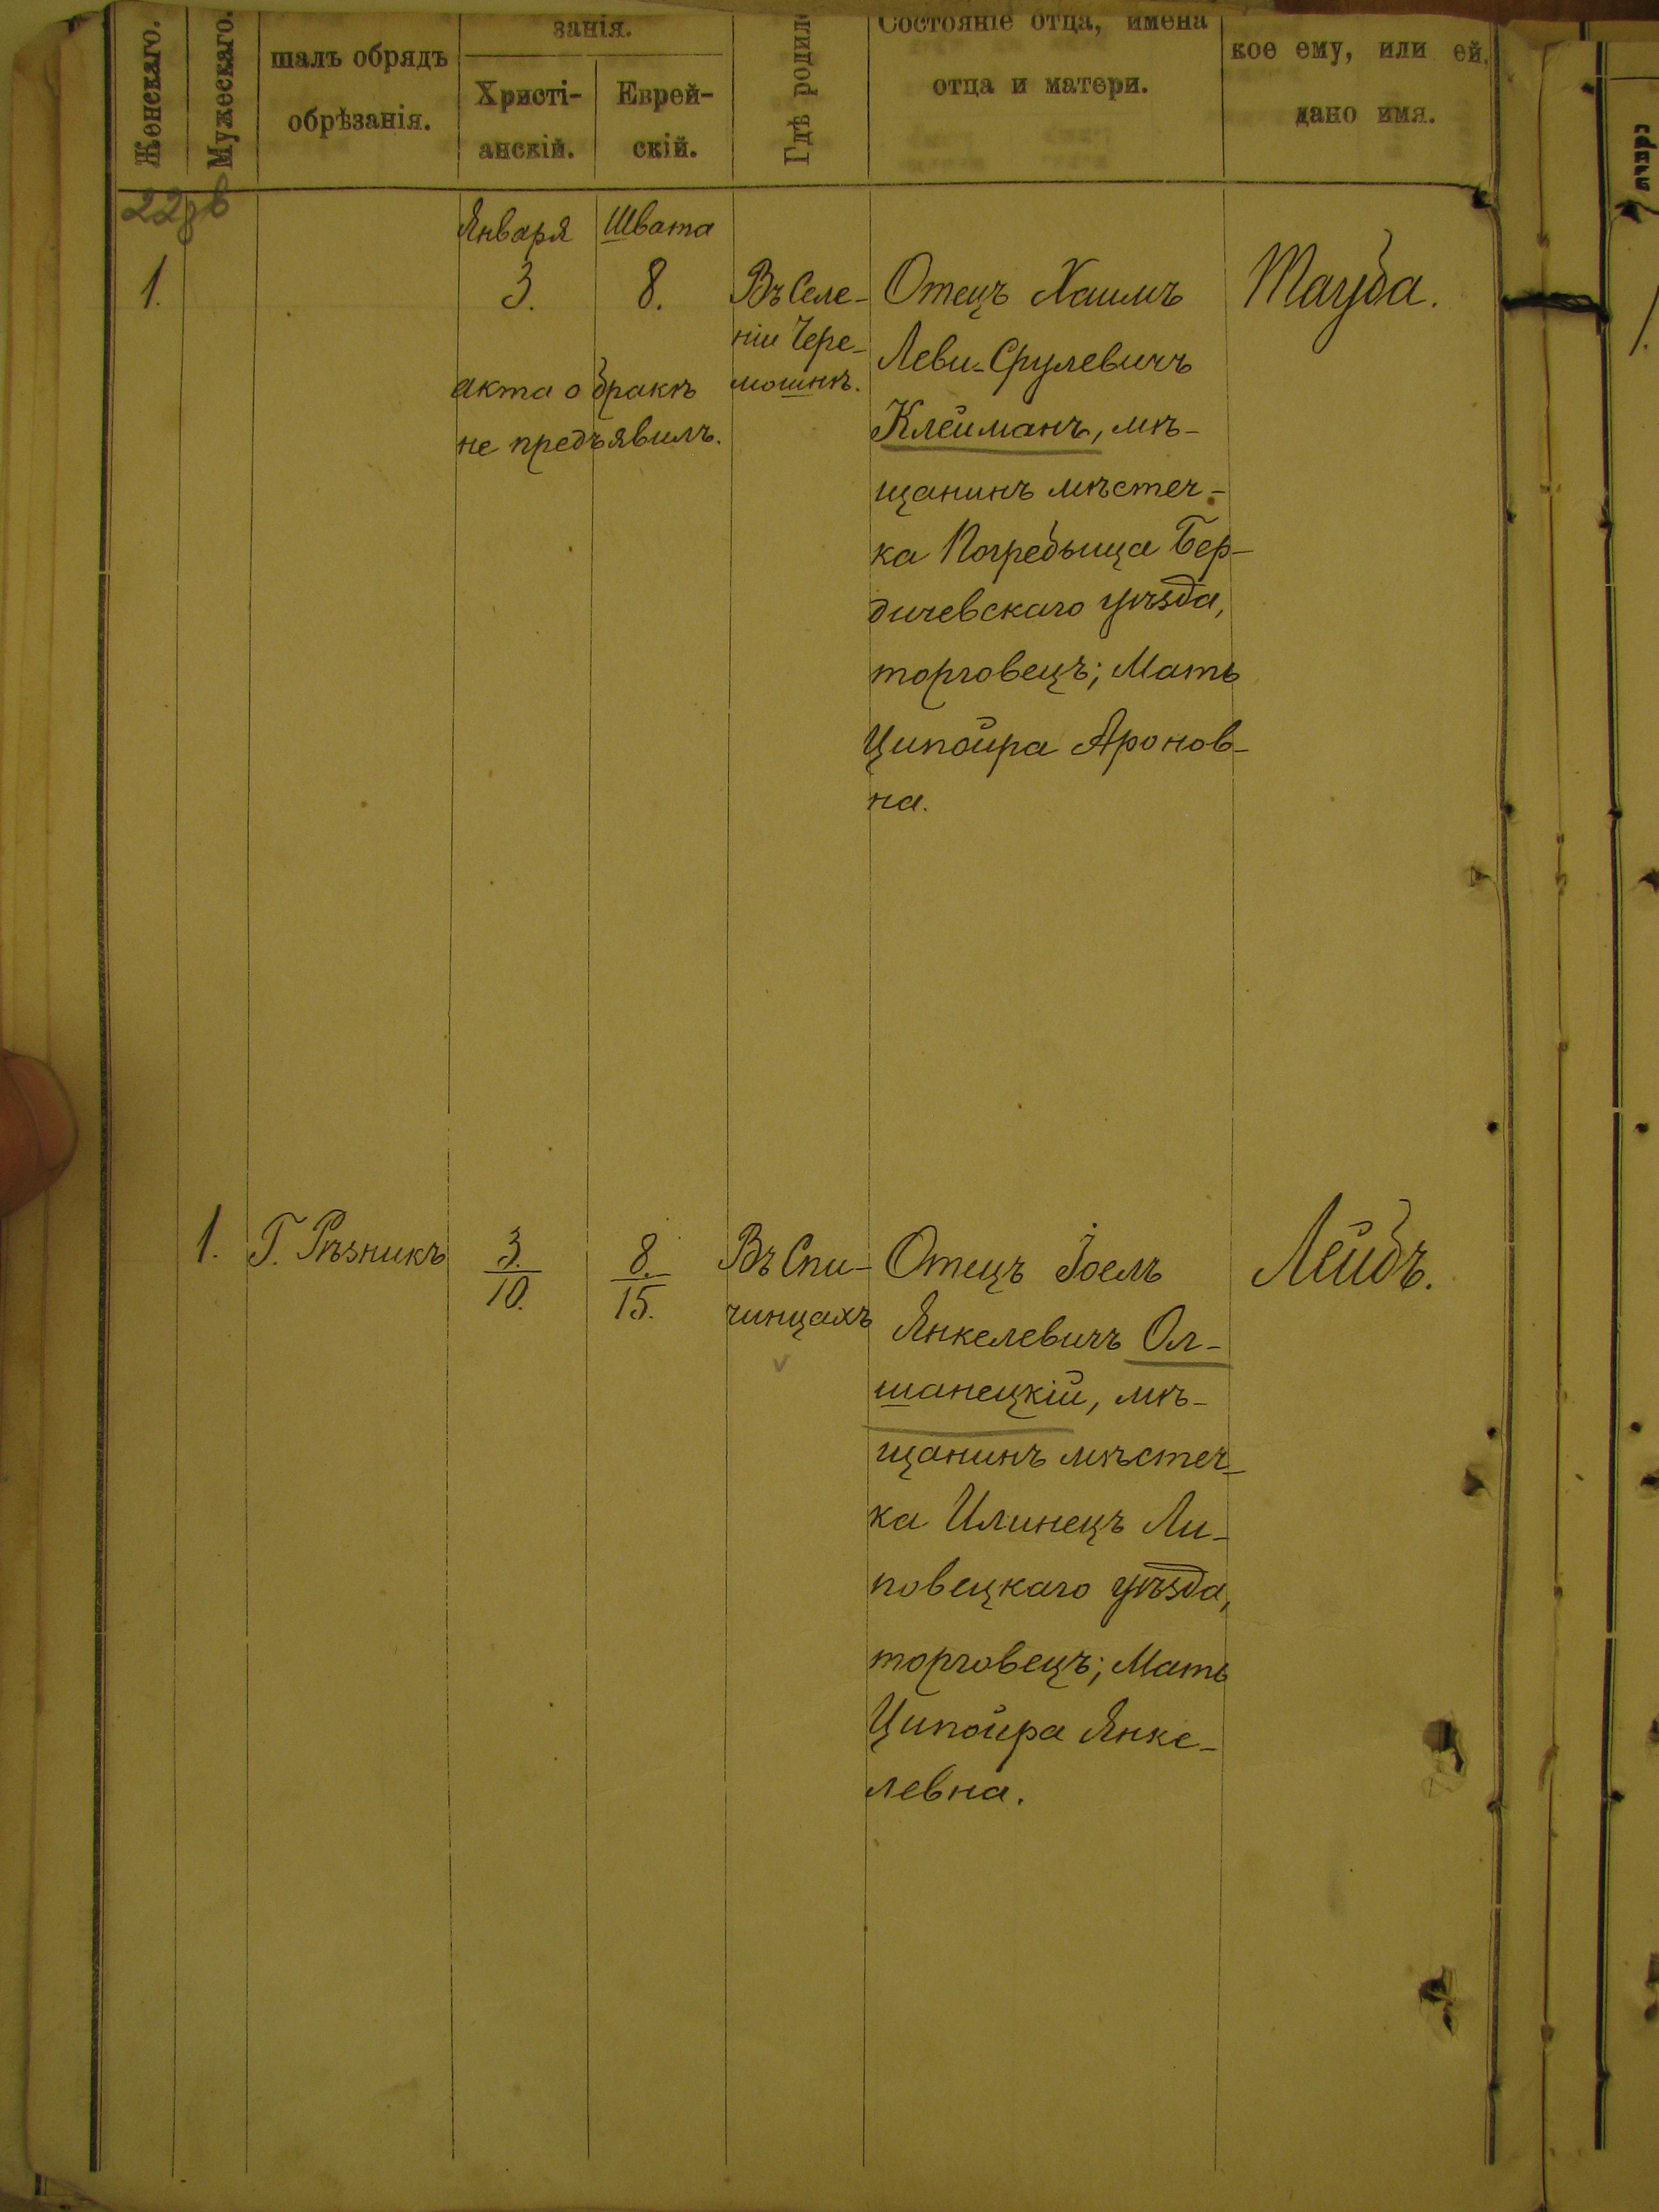 Женскаго.
Мужескаго.
шалъ обрядъ
обрѣзанія.
занія.
Христі-
анскій.
Еврей-
скій.
Гдѣ родил
Состояніе отца, имена
отца и матери.
кое ему, или ей,
дано имя.
Января
Швата
1.
3.
8.
Въ Селе-
ніи Чере-
мошнѣ.
акта о бракѣ
не предъявилъ.
Отецъ Хаимъ
Леви-Срулевичъ
Клейманъ, мѣ-
щанинъ мѣстеч-
ка Погребыща Бер-
дичевскаго уѣзда,
торговецъ; Мать
Ципойра Аронов-
на.
Тауба.
1.
Г. Рѣзникъ
3.
10.
8.
15.
Въ Спи-
чинцахъ
Отецъ Іоелъ
Янкелевичъ Ол-
шанецкій, мѣ-
щанинъ мѣстеч-
ка Илинецъ Ли-
повецкаго уѣзда,
торговецъ; Мать
Ципойра Янке-
левна.
Лейбъ.